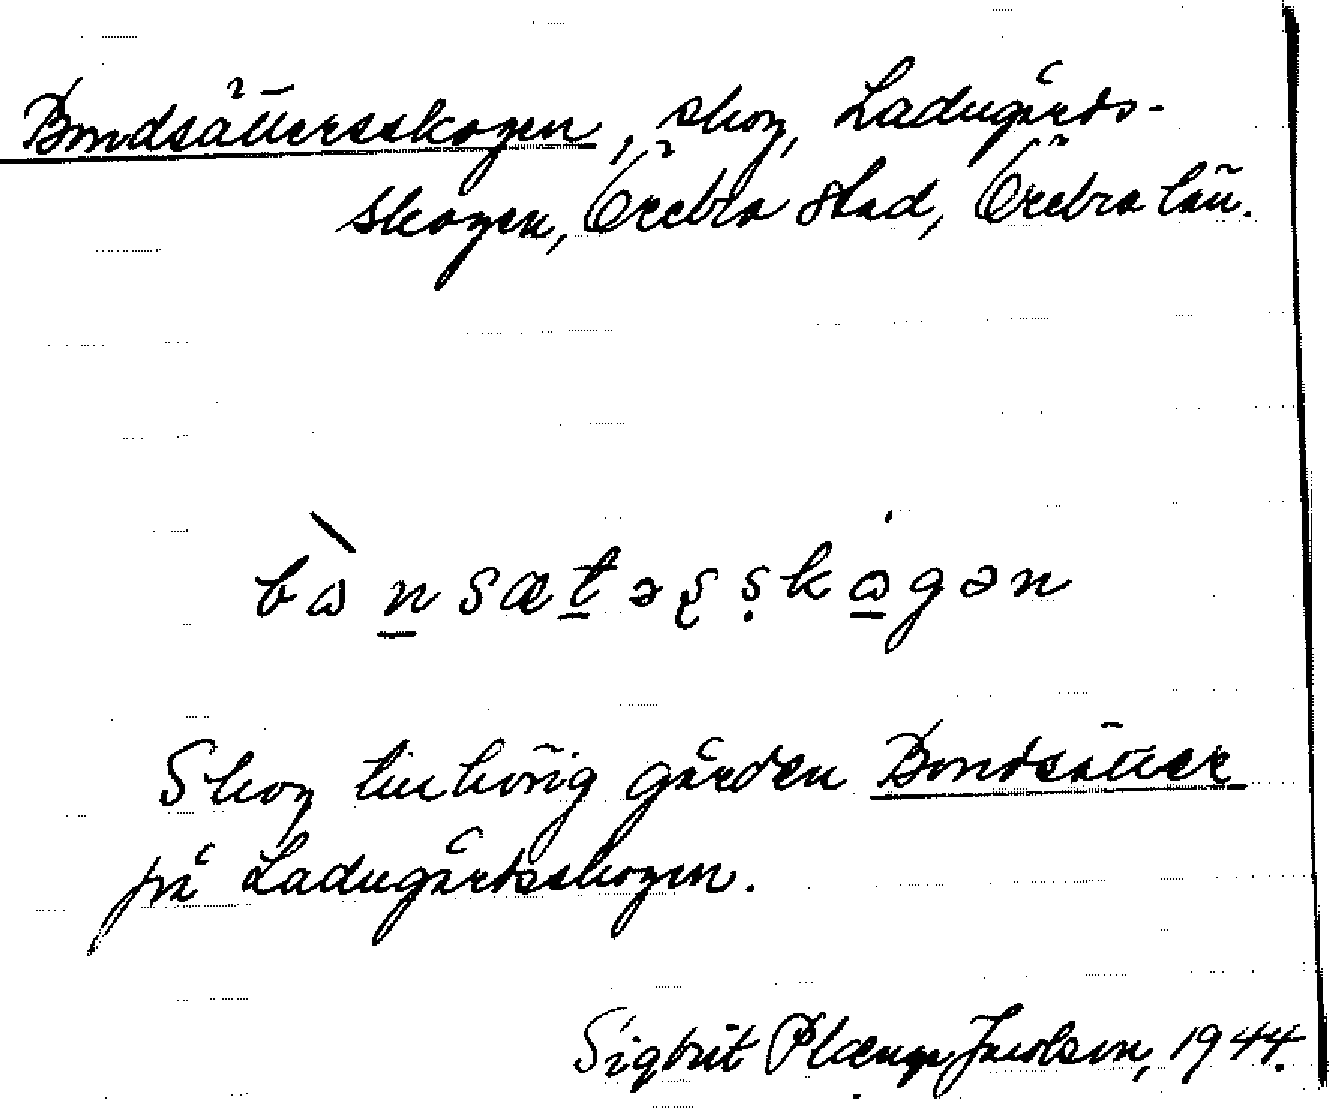 Bondsättersskogen, skog, Ladugårds-
skogen, Örebro stad, Örebro län.
Skog tillhörig gården Bondsätter
på Ladugårdsskogen.
Sigbrit Plænge Jacobson, 1944.